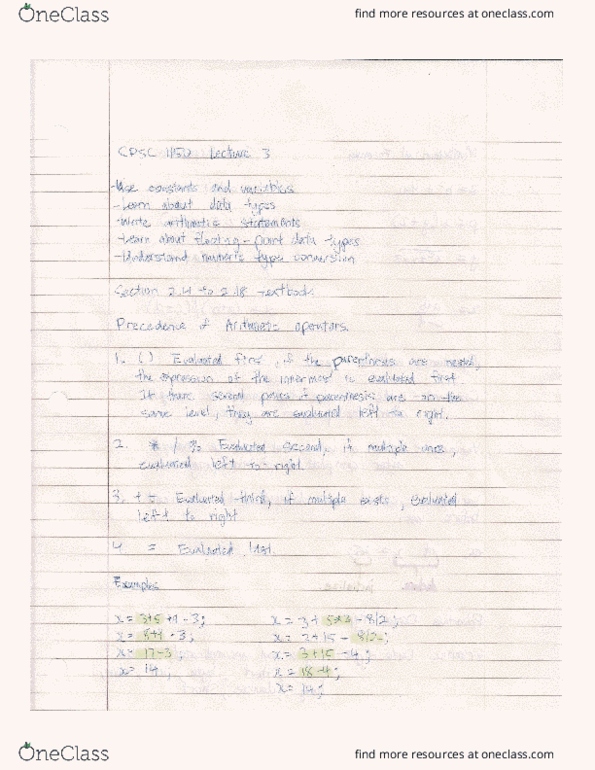 OneClass find more resources at oneclass.com
CPSC 1150 Lecture 3
-Use constants and variables
-Learn about data types
-Write arithmetic statements
-Learn about floating-point data types
-Understand numeric type conversion
Section 2.4 to 2.18 textbook.
Precedence of Arithmetic operators.
1. ( ) Evaluated first, if the parentheses are nested,
the expression of the innermost is evaluated first.
If there several pairs of parenthesis are on the
same level, they are evaluated left to right.
2. * / % Evaluated second, if multiple
evaluated left to right.
3. + - Evaluated third, if multiple exists, evaluated
left to right
4. = Evaluated last.
Examples
x = 3+5 - 3; x = 3 + 5*3 - 8/2;
x = - 3; x = 3 + 15 - 8/2;
x = 17-3; x = 3+15 -4;
x = 14; x = 18-4;
x = 14;
OneClass find more resources at oneclass.com